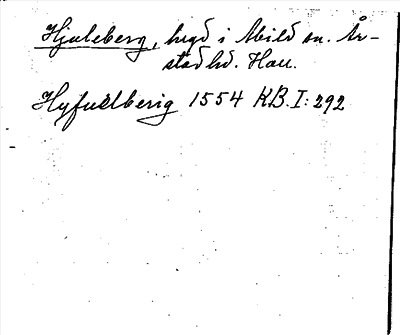 Hjuleberg, hvgd i Abild sn. År-
stad hd. Hall.
Hyfuelberig 1554 KB. I: 292